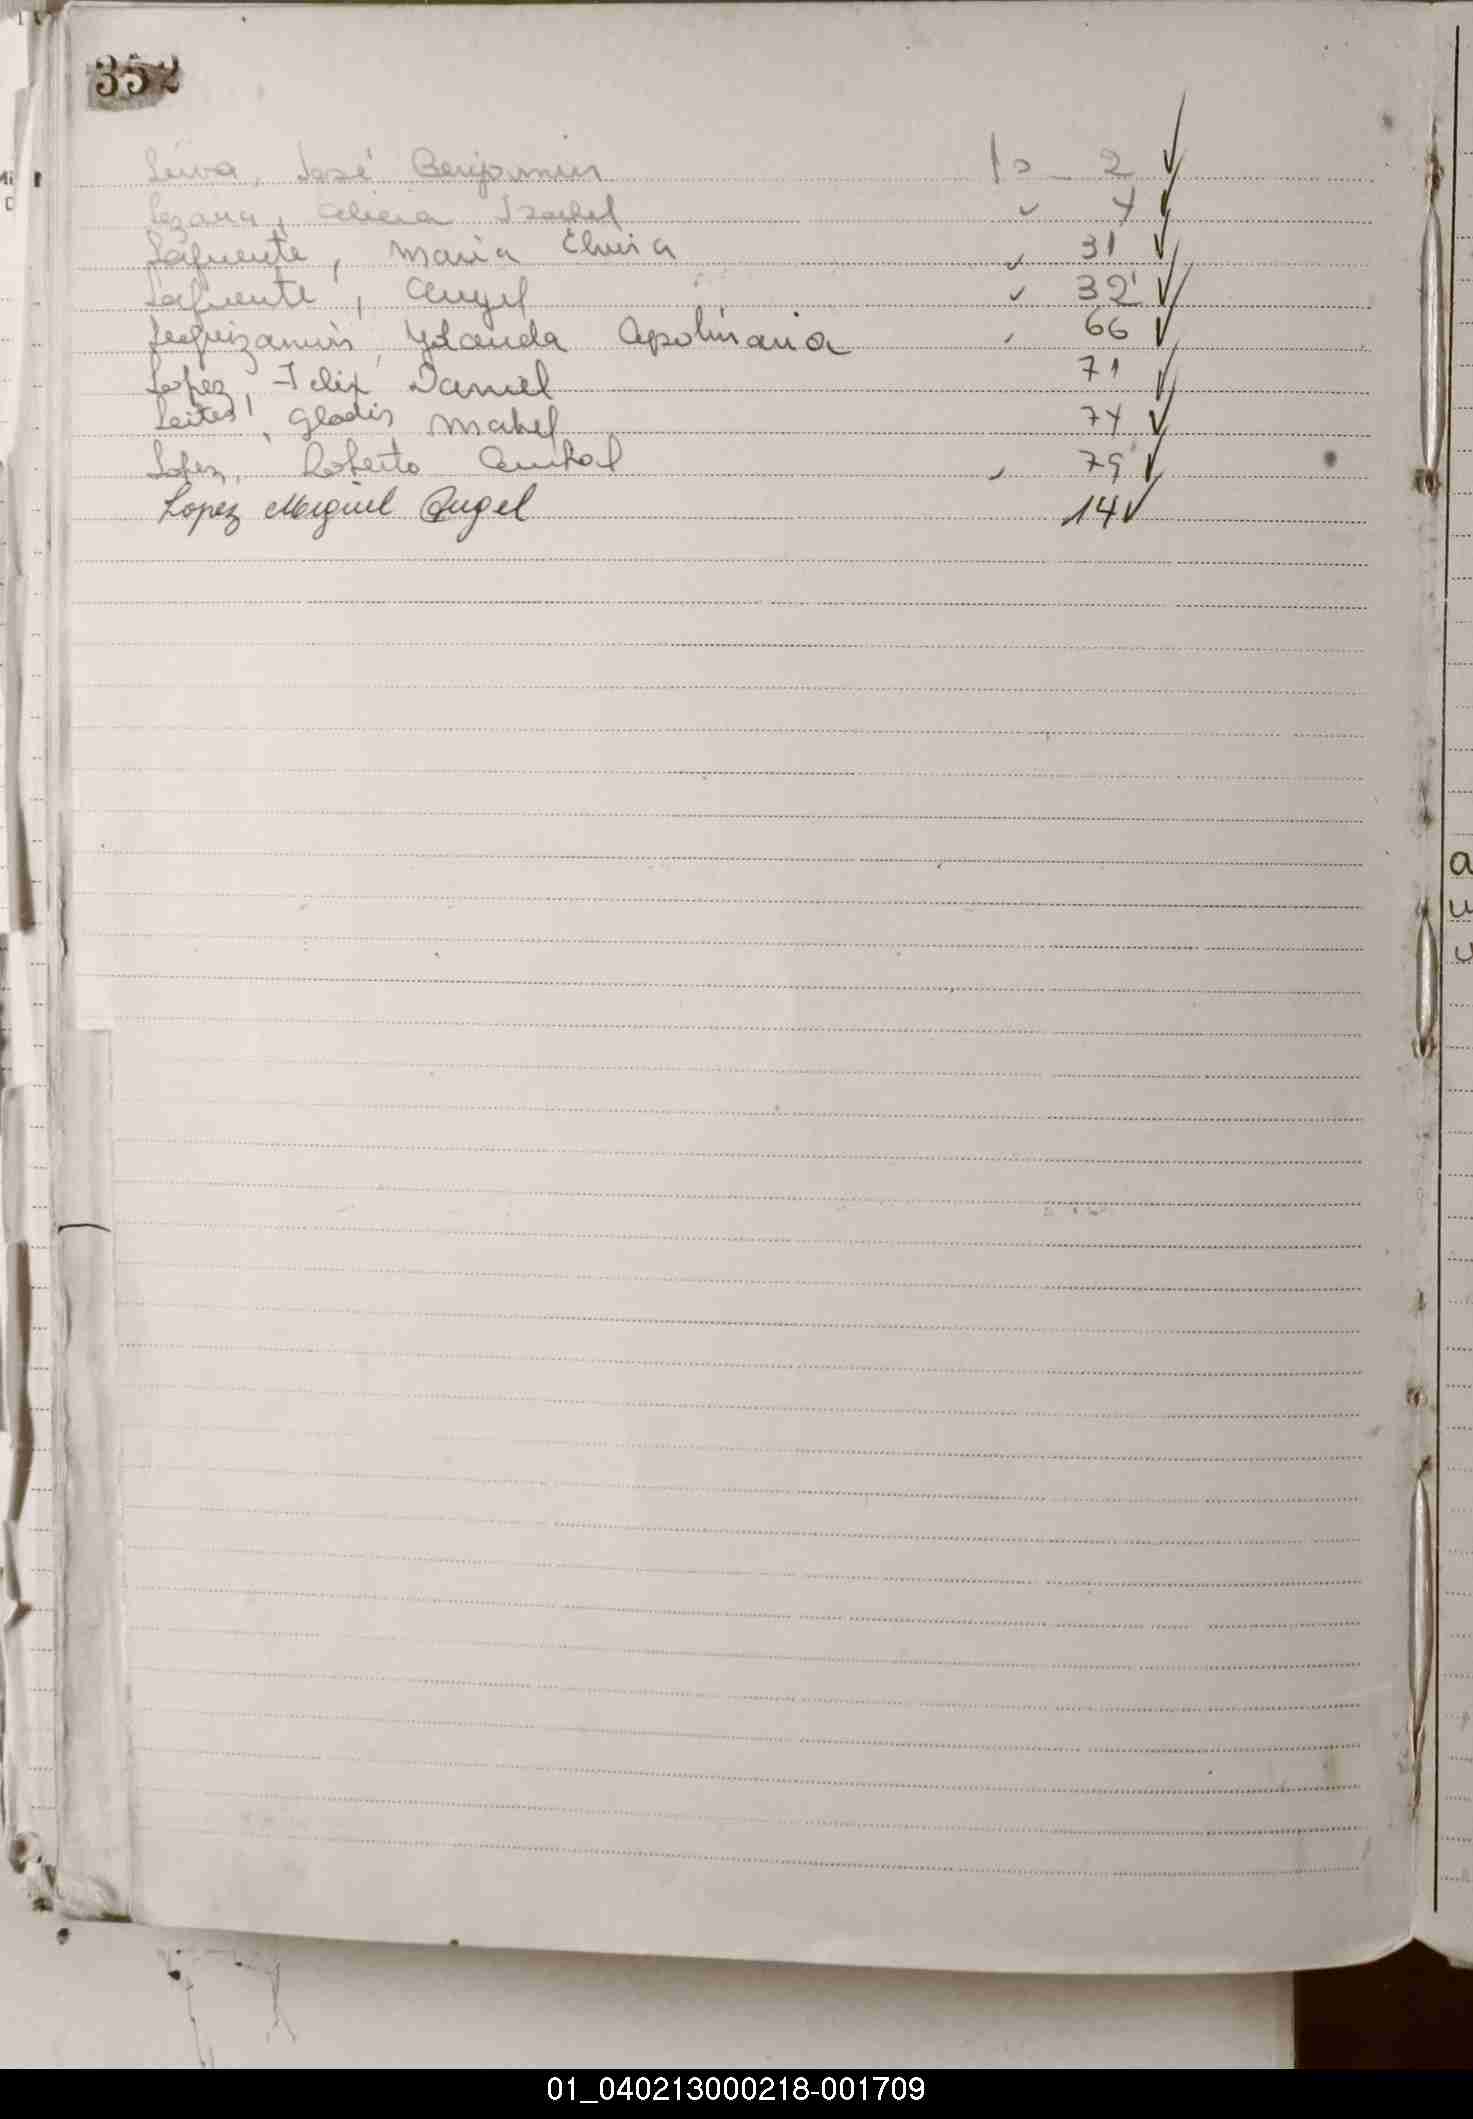 352
Leiva, José Benjamin fo 2 ✓
Lezana, Alicia Isabel " 4 ✓
Lafuente, Maria Elvira " 31 ✓
Lafuente, Angel " 32 ✓
Leguizamón, Yolanda Apolinaria " 66 ✓
Lopez, Felix Daniel 71 ✓
Leites, Gladis Mabel 74 ✓
Lopez, Roberto Anibal " 79 ✓
Lopez Miguel Angel 14 ✓
01_040213000218-001709